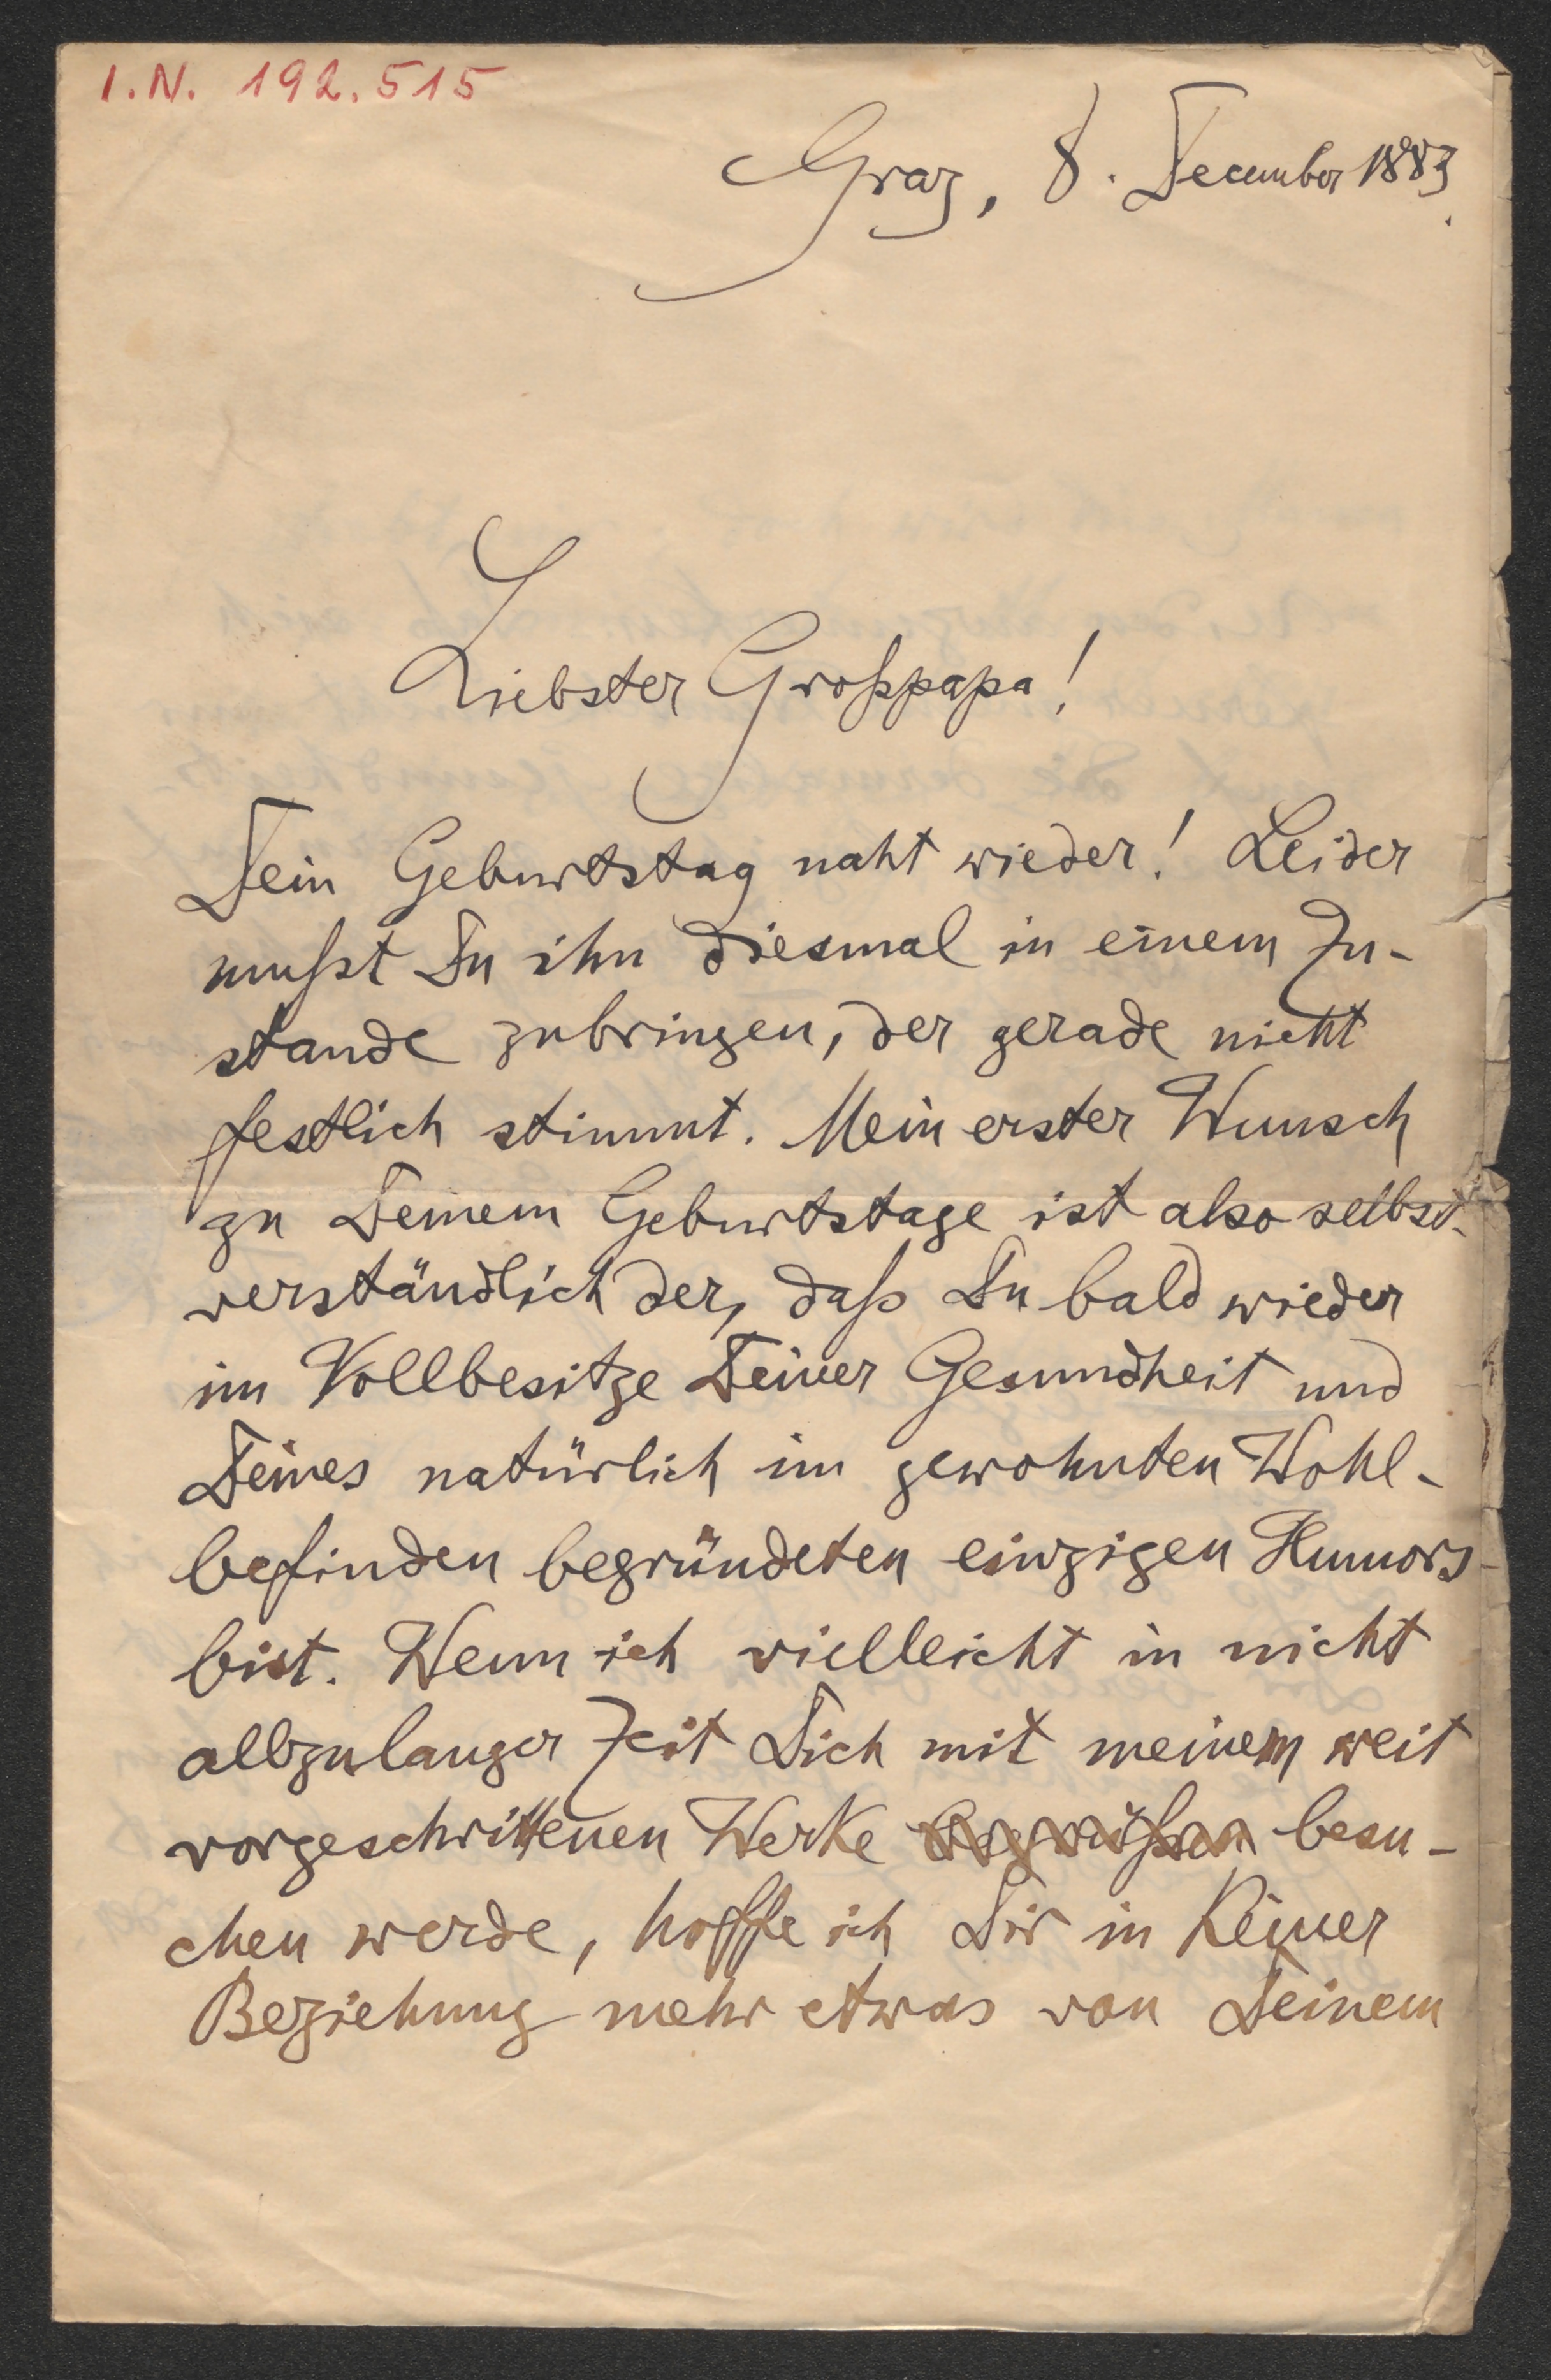 I.N. 192.515
Graz, 8. December 1883.
Liebster Großpapa!
Dein Geburtstag naht wieder! Leider
mußt Du ihn diesmal in einem Zu-
stande zubringen, der gerade nicht
festlich stimmt. Mein erster Wunsch
zu Deinem Geburtstage ist also selbst-
verständlich der, daß Du bald wieder
im Vollbesitze Deiner Gesundheit und
Deines natürlich im gewohnten Wohl-
befinden begründeten einzigen Humors
bist. Wenn ich vielleicht in nicht
allzulanger Zeit Dich mit meinem weit
vorgeschrittenen Werke besu-
chen werde, hoffe ich Dir in keiner
Beziehung mehr etwas von Deinem